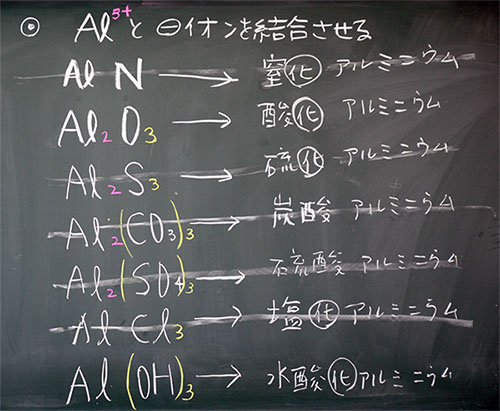 ⊙ Al³⁺と⊖イオンを結合させる
AlN → 窒化アルミニウム
Al₂O₃ → 酸化アルミニウム
Al₂S₃ → 硫化アルミニウム
Al₂(CO₃)₃ → 炭酸アルミニウム
Al₂(SO₄)₃ → 硫酸アルミニウム
AlCl₃ → 塩化アルミニウム
Al(OH)₃ → 水酸化アルミニウム